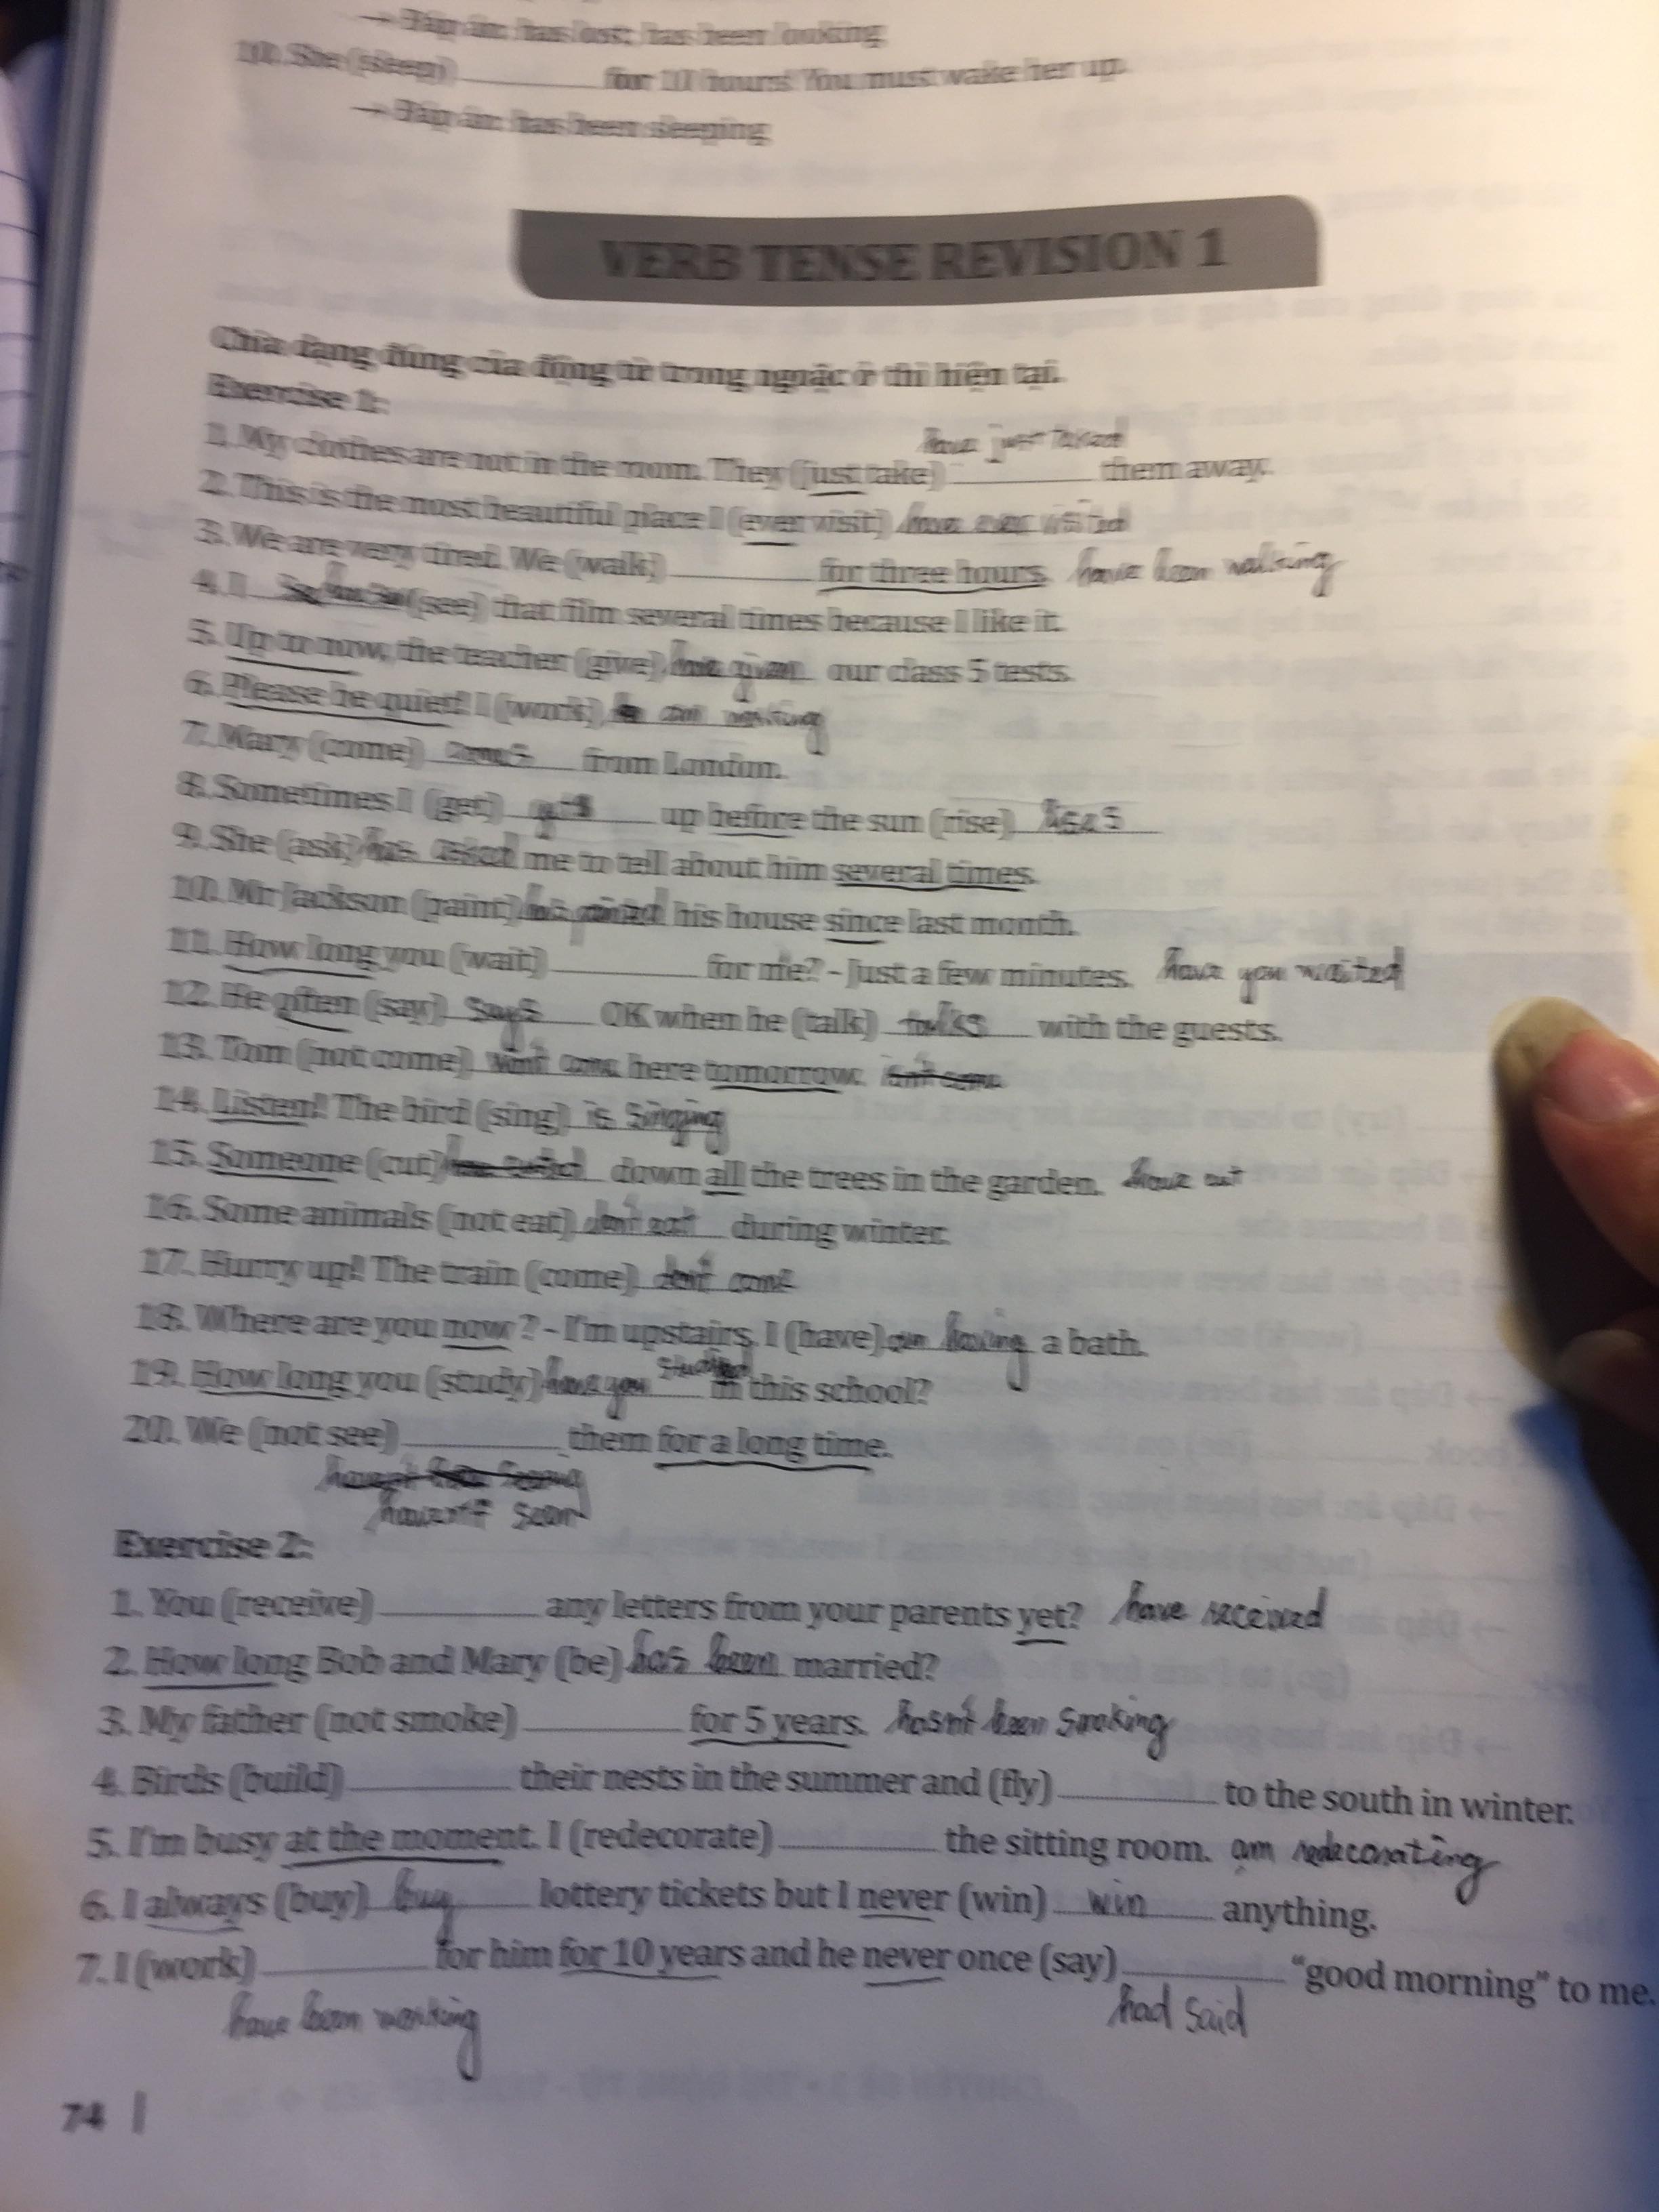 → Đáp án: has lost; has been looking
10. She (sleep) ______ for 10 hours! You must wake her up.
→ Đáp án: has been sleeping
VERB TENSE REVISION 1
Chia dạng đúng của động từ trong ngoặc ở thì hiện tại.
Exercise 1:
have just taked
1. My clothes are not in the room. They (just take) ______ them away.
2. This is the most beautiful place I (ever visit) have ever visited
3. We are very tired. We (walk) ______ for three hours. have been walking
4. I (see) that film several times because I like it.
5. Up to now, the teacher (give) has given our class 5 tests.
6. Please be quiet! I (work) am working
7. Mary (come) comes from London.
8. Sometimes I (get) gets up before the sun (rise) rises
9. She (ask) has asked me to tell about him several times.
10. Mr Jackson (paint) has painted his house since last month.
11. How long you (wait) ______ for me? - Just a few minutes. have you waited
12. He often (say) says OK when he (talk) talks with the guests.
13. Tom (not come) won't come here tomorrow. isn't come
14. Listen! The bird (sing) is singing
15. Someone (cut) down all the trees in the garden. have cut
16. Some animals (not eat) don't eat during winter.
17. Hurry up! The train (come) don't come
18. Where are you now? - I'm upstairs. I (have) am having a bath.
19. How long you (study) have you studied in this school?
20. We (not see) ______ them for a long time.
haven't seen
Exercise 2:
1. You (receive) ______ any letters from your parents yet? have received
2. How long Bob and Mary (be) has been married?
3. My father (not smoke) ______ for 5 years. hasn't been smoking
4. Birds (build) ______ their nests in the summer and (fly) ______ to the south in winter.
5. I'm busy at the moment. I (redecorate) ______ the sitting room. am redecorating
6. I always (buy) buy lottery tickets but I never (win) win anything.
7. I (work) ______ for him for 10 years and he never once (say) ______ "good morning" to me.
have been working had said
74 |